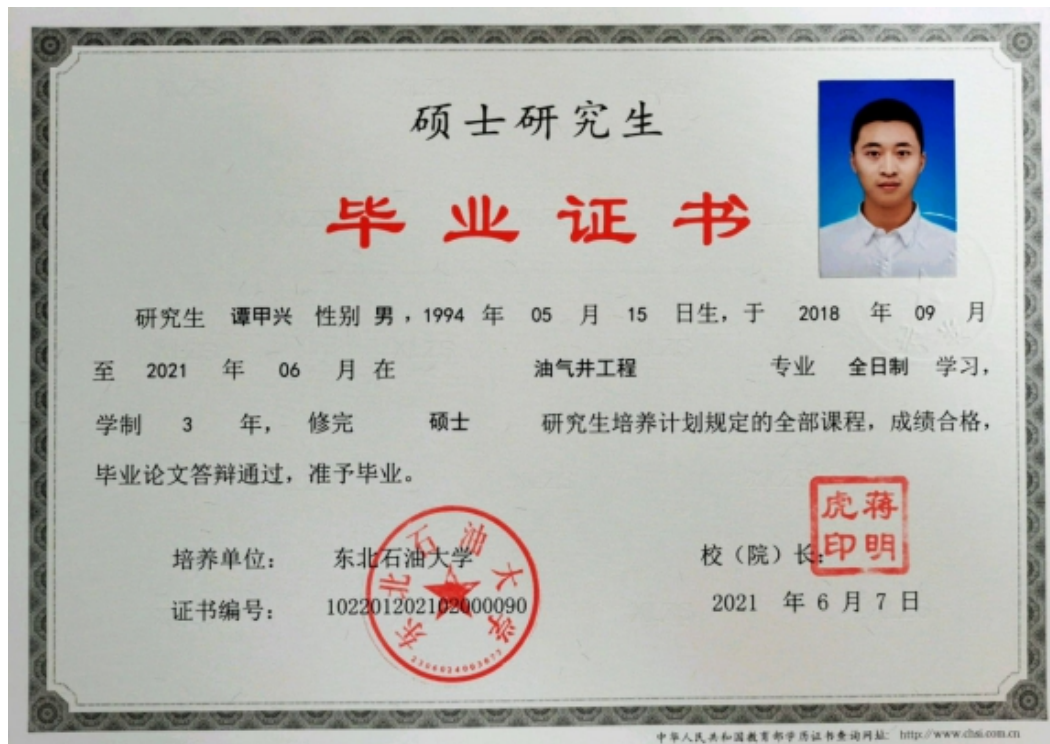 硕士研究生
毕业证书
研究生 谭甲兴 性别 男，1994 年 05 月 15 日生，于 2018 年 09 月
至 2021 年 06 月在 油气井工程 专业 全日制 学习，
学制 3 年， 修完 硕士 研究生培养计划规定的全部课程，成绩合格，
毕业论文答辩通过，准予毕业。
培养单位： 东北石油大学
校（院）长：
蒋明虎印
证书编号： 102201202102000090
2021 年 6 月 7 日
东北石油大学
中华人民共和国教育部学历证书查询网址： http://www.chsi.com.cn